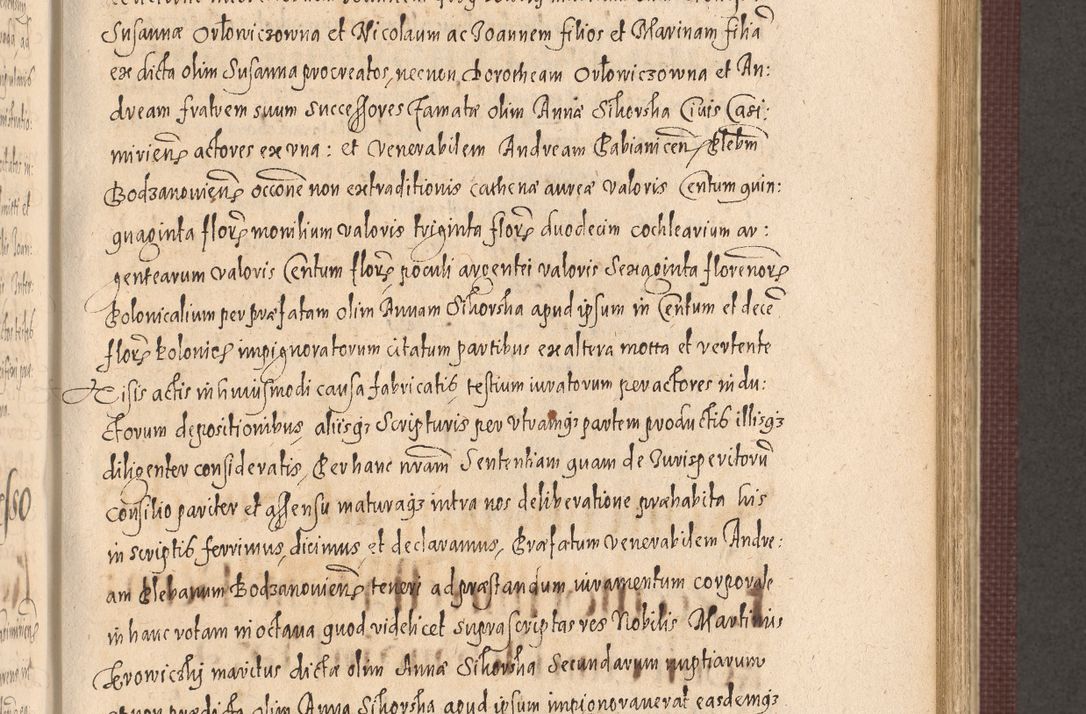 Susannæ Orłowiczowna et Nicolaum ac Joannem filios et Marinam filiã
ex dicta olim Susanna procreatos, necnon Dorotheam Orłowiczowna et An:
dream fratrem suum successores Famatæ olim Annæ Sikorska Ciuis Casi:
mirieñ actores ex vna: et Venerabilem Andream Pabianiceñ Plebm̃
Bodzanouieñ occõne non extraditionis cathenæ aureæ valoris Centum quin:
quaginta floř monilium valoris triginta floř duodecim cochlearium ar:
gentearum valoris Centum floř poculi argentei valoris Sexaginta florenoř
Polonicalium per præfatam olim Annam Sikorska apud ipsum in Centum et decẽ
floř Polonic̃ impignoratorum citatum partibus ex altera motta et vertente
Visis actis in huiusmodi causa fabricatis testium iuratorum per actores indu:
ctorum depositionibus, aliisq3 Scripturis per vtramq3 partem productis illisq3
diligenter consideratis, Per hanc nr̃am Sententiam quam de Jurisperitorũ
consilio pariter et assensu maturaq3 intra nos deliberatione præhabita his
in scriptis ferrimus, dicimus, et declaramus, Præfatum Venerabilem Andre:
am Plebanum Bodzanouieñ teneri ad præstandum iuramentum corporale
in hanc votam in octaua quod videlicet suprascriptas res Nobilis Martinus
Krowiczkj maritus dictæ olim Annæ Sikorska Secundarum nuptiarum
et non prædicta olim Anna Sikorska apud ipsum impignorauerat easdemq3